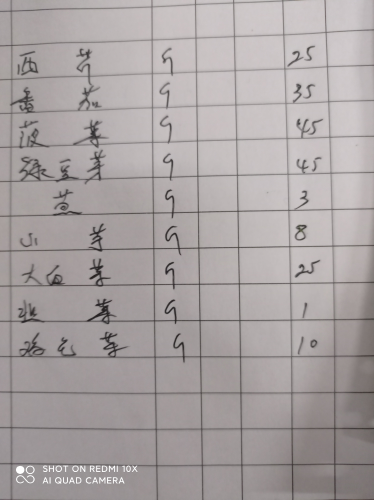 西芹 斤 25
番茄 斤 35
菠菜 斤 45
绿豆芽 斤 45
斤 3
小 斤 8
大白菜 斤 25
韭菜 斤 1
菜 斤 10
SHOT ON REDMI 10X
AI QUAD CAMERA